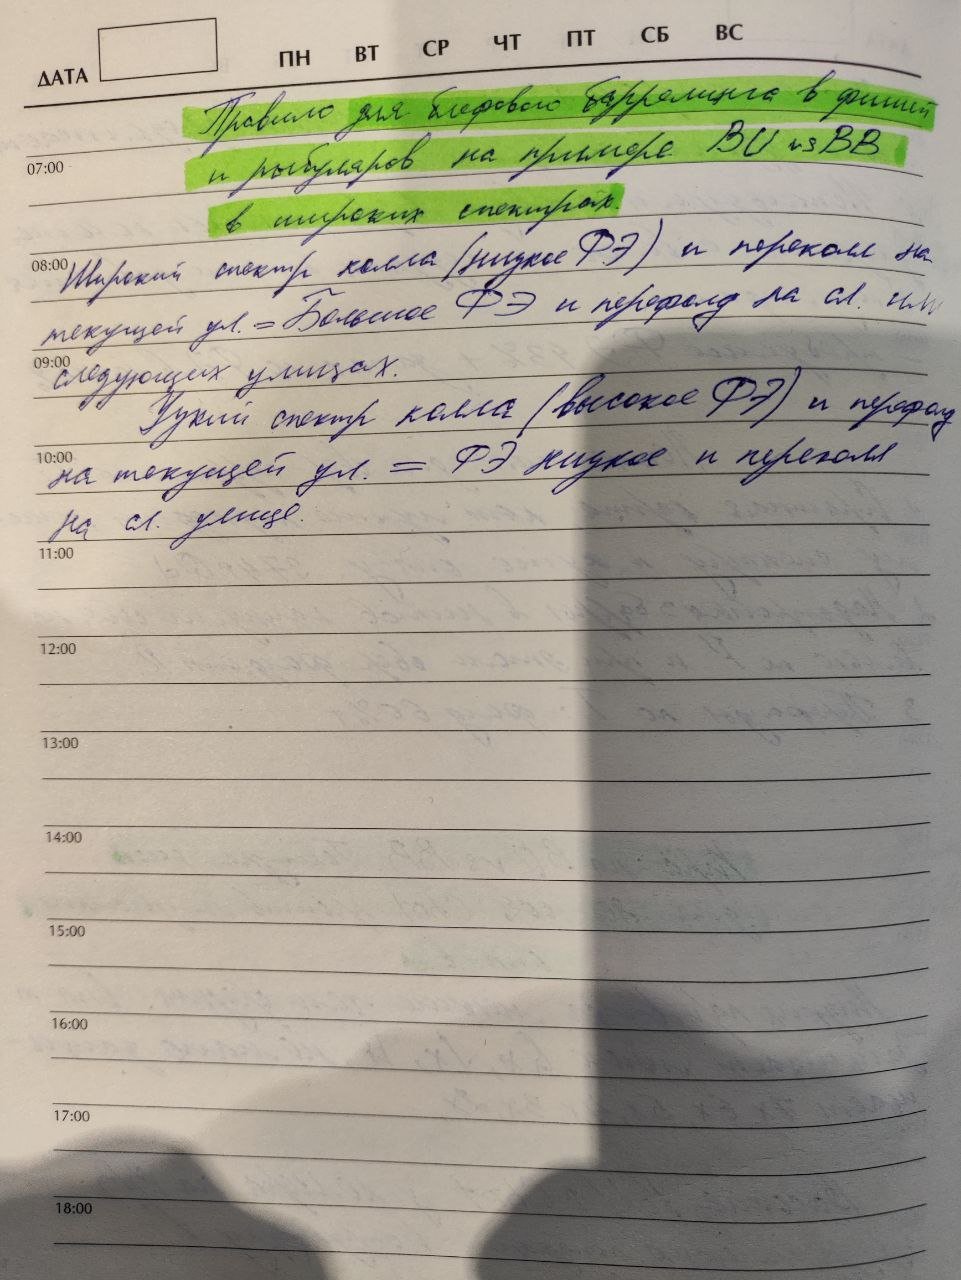 ДАТА ПН ВТ СР ЧТ ПТ СБ ВС
Правило для блефового баррелинга в фишей
07:00
и рыбуляров на примере BU vs BB
в широких спектрах.
08:00
Широкий спектр колла (низкое ФЭ) и переколл на
текущей ул. = Большое ФЭ и перефолд на сл. или
09:00
следующих улицах.
Узкий спектр колла (высокое ФЭ) и перефолд
10:00
на текущей ул. = ФЭ низкое и переколл
на сл. улице.
11:00
12:00
13:00
14:00
15:00
16:00
17:00
18:00